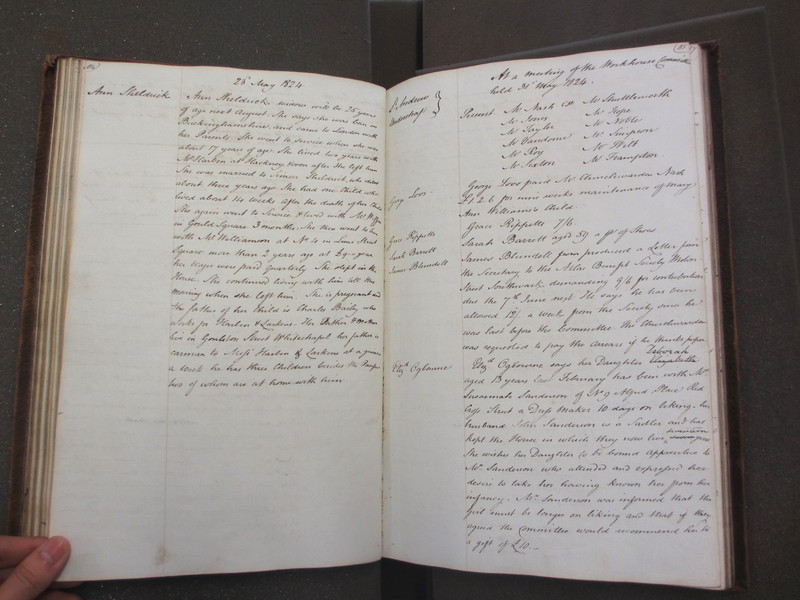 26 May 1824
Ann Sheldrick
Ann Sheldrick widow will be 25 years
of age next August. She says she was born in
Buckinghamshire and came to London with
her Parents. She went to service when she was
about 17 years of age. She lived two years with
Mr Harbin at Hackney. Soon after she left him
She was married to Simon Sheldrick, who died
about three years ago. She had one Child who
lived about 14 weeks after the death of her
She again went to Service & lived with Mr
in Gould Square 3 months. She then went to live
with Mr Williamson at No 4 in Lime Street
Square more than 2 years ago at £9 a year
her wages were paid quarterly. She slept in the
House. She continued living with him till this
morning when she left him. She is pregnant and
the father of her Child is Charles Baily who
works for Harbin & Larkins. Her Father & Mother
live in Goulston Street Whitechapel her father is
carman to Messrs Harbin & Larkins at a guinea
a week he has three Children besides the Pauper
two of whom are at home with him
At a meeting of the Workhouse Committee
held 31st May 1824.
St Andrew
Undershaft
Present Mr Nash CW Mr Shuttleworth
Mr Jones Mr Pope
Mr Taylor Mr Noble
Mr Vandome Mr Simpson
Mr Roy Mr Wilt
Mr Sexton Mr Frampton
George Loos
George Loos paid Mr Churchwarden Nash
£1.2.6 for nine weeks maintenance of Mary
Ann Williams's Child.
Grace Rippetts
Grace Rippetts 7/6
Sarah Barrett
Sarah Barrett aged 59 a pr of Shoes
James Blundell
James Blundell produced a Letter from
the Secretary to the Atlas Benefit Society
Street Southwark demanding 9/6 for contributions
due the 7th June next. He says he has been
allowed 12/ a week from the Society since he
was last before the Committee. The Churchwarden
was requested to pay the arrears if he thinks proper
Elizth Ogbourne
Elizth Ogbourne says her Daughter Deborah Elizabeth
aged 15 years last February has been with Mrs
Susannah Sanderson of No 9 Alfred Place Red
Cross Street a Dress Maker 10 days on liking. her
husband John Sanderson is a Sadler and has
kept the House in which they now live
She wishes her Daughter to be bound apprentice to
Mrs Sanderson who attended and expressed her
desire to take her having known her from her
infancy. Mrs Sanderson was informed that the
girl must be longer on liking and that if they
agreed the Committee would recommend her to
a gift of £10...